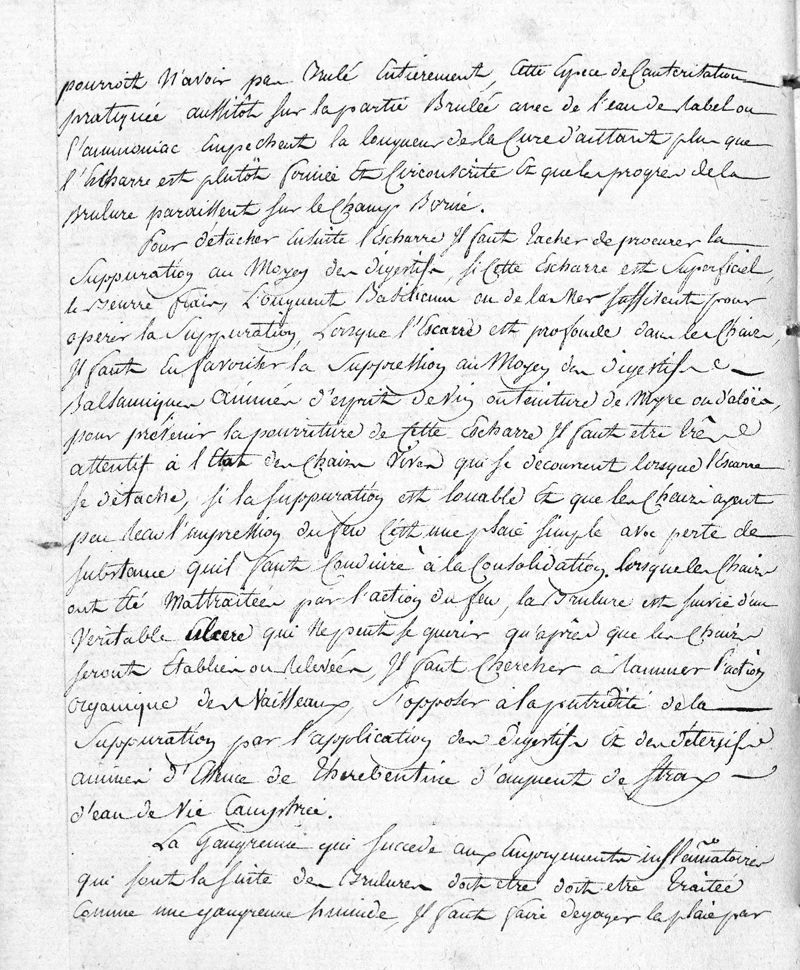 pourroit n'avoir pas Brulé Entierement, Cette Espece de Cauteritation
pratiquée aussitôt sur la partie Brulée avec de l'eau de Rabel ou
l'ammoniac Empechent la longueur de la Cure d'autant plus que
l'Escharre est plutôt formée Et Circonscrite Et que les progrès de la
Brulure paraissent sur le Champ Borné.
Pour détacher Ensuite l'Escharre Il faut tacher de procurer la
Suppuration au Moyen des digestifs, si Cette Escharre est Superficiel,
le Beurre frais, L'onguent Basilicum ou de la Mer suffisent pour
operer la Suppuration, Lorsque l'Escarre est profonde dans les Chairs,
Il faut En favoriser la Suppression au Moyen des digestifs
Balsamiques animés d'esprit de vin ou teinture de Myre ou d'aloës,
pour prévenir la pourriture de Cette Escharre Il faut etre très
attentif à l'Etat des Chairs Vives qui se decouvrent lorsque l'Escarre
se détache, si la suppuration est louable Et que les Chairs ayent
peu Recu l'impression du feu C'est une plaie simple avec perte de
substance qu'il faut Conduire à la Consolidation. Lorsque les Chairs
ont été Maltraitées par l'action du feu, la Brulure est suivie d'un
Veritable Ulcere qui ne peut se guerir qu'après que les Chairs
seront Etablies ou Relevées, Il faut Chercher à ranimer l'action
organique des Vaisseaux, S'opposer à la putridité de la
Suppuration par l'application des digestifs Et des détersifs
animés d'Essence de Therebentine d'onguent de Strax
d'eau de Vie Camphrée.
La Gangrenne qui succede aux Engorgements inflammatoires
qui sont la suite des Brulures doit etre doit etre traitée
Comme une gangrenne humide, Il faut faire degager la plaie par